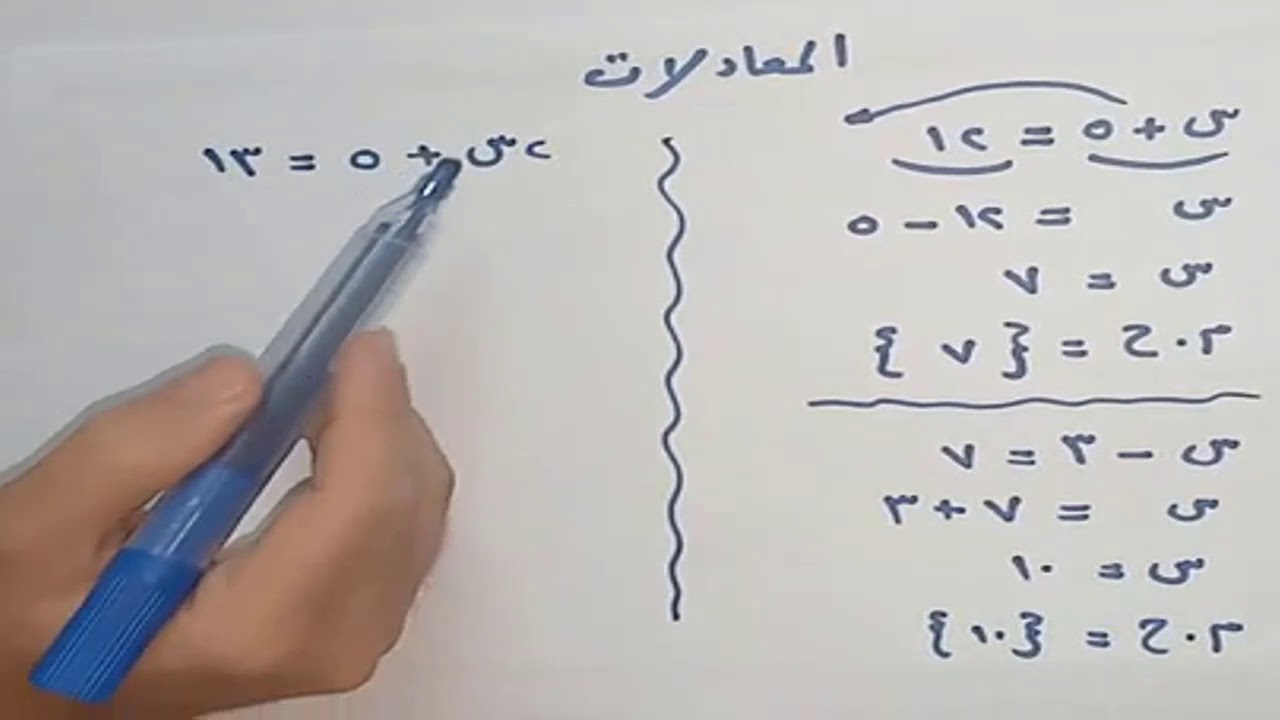 المعادلات
س + ٥ = ١٢
س = ١٢ − ٥
س = ٧
م.ح = {٧}
س − ٣ = ٧
س = ٧ + ٣
س = ١٠
م.ح = {١٠}
٢س + ٥ = ١٣